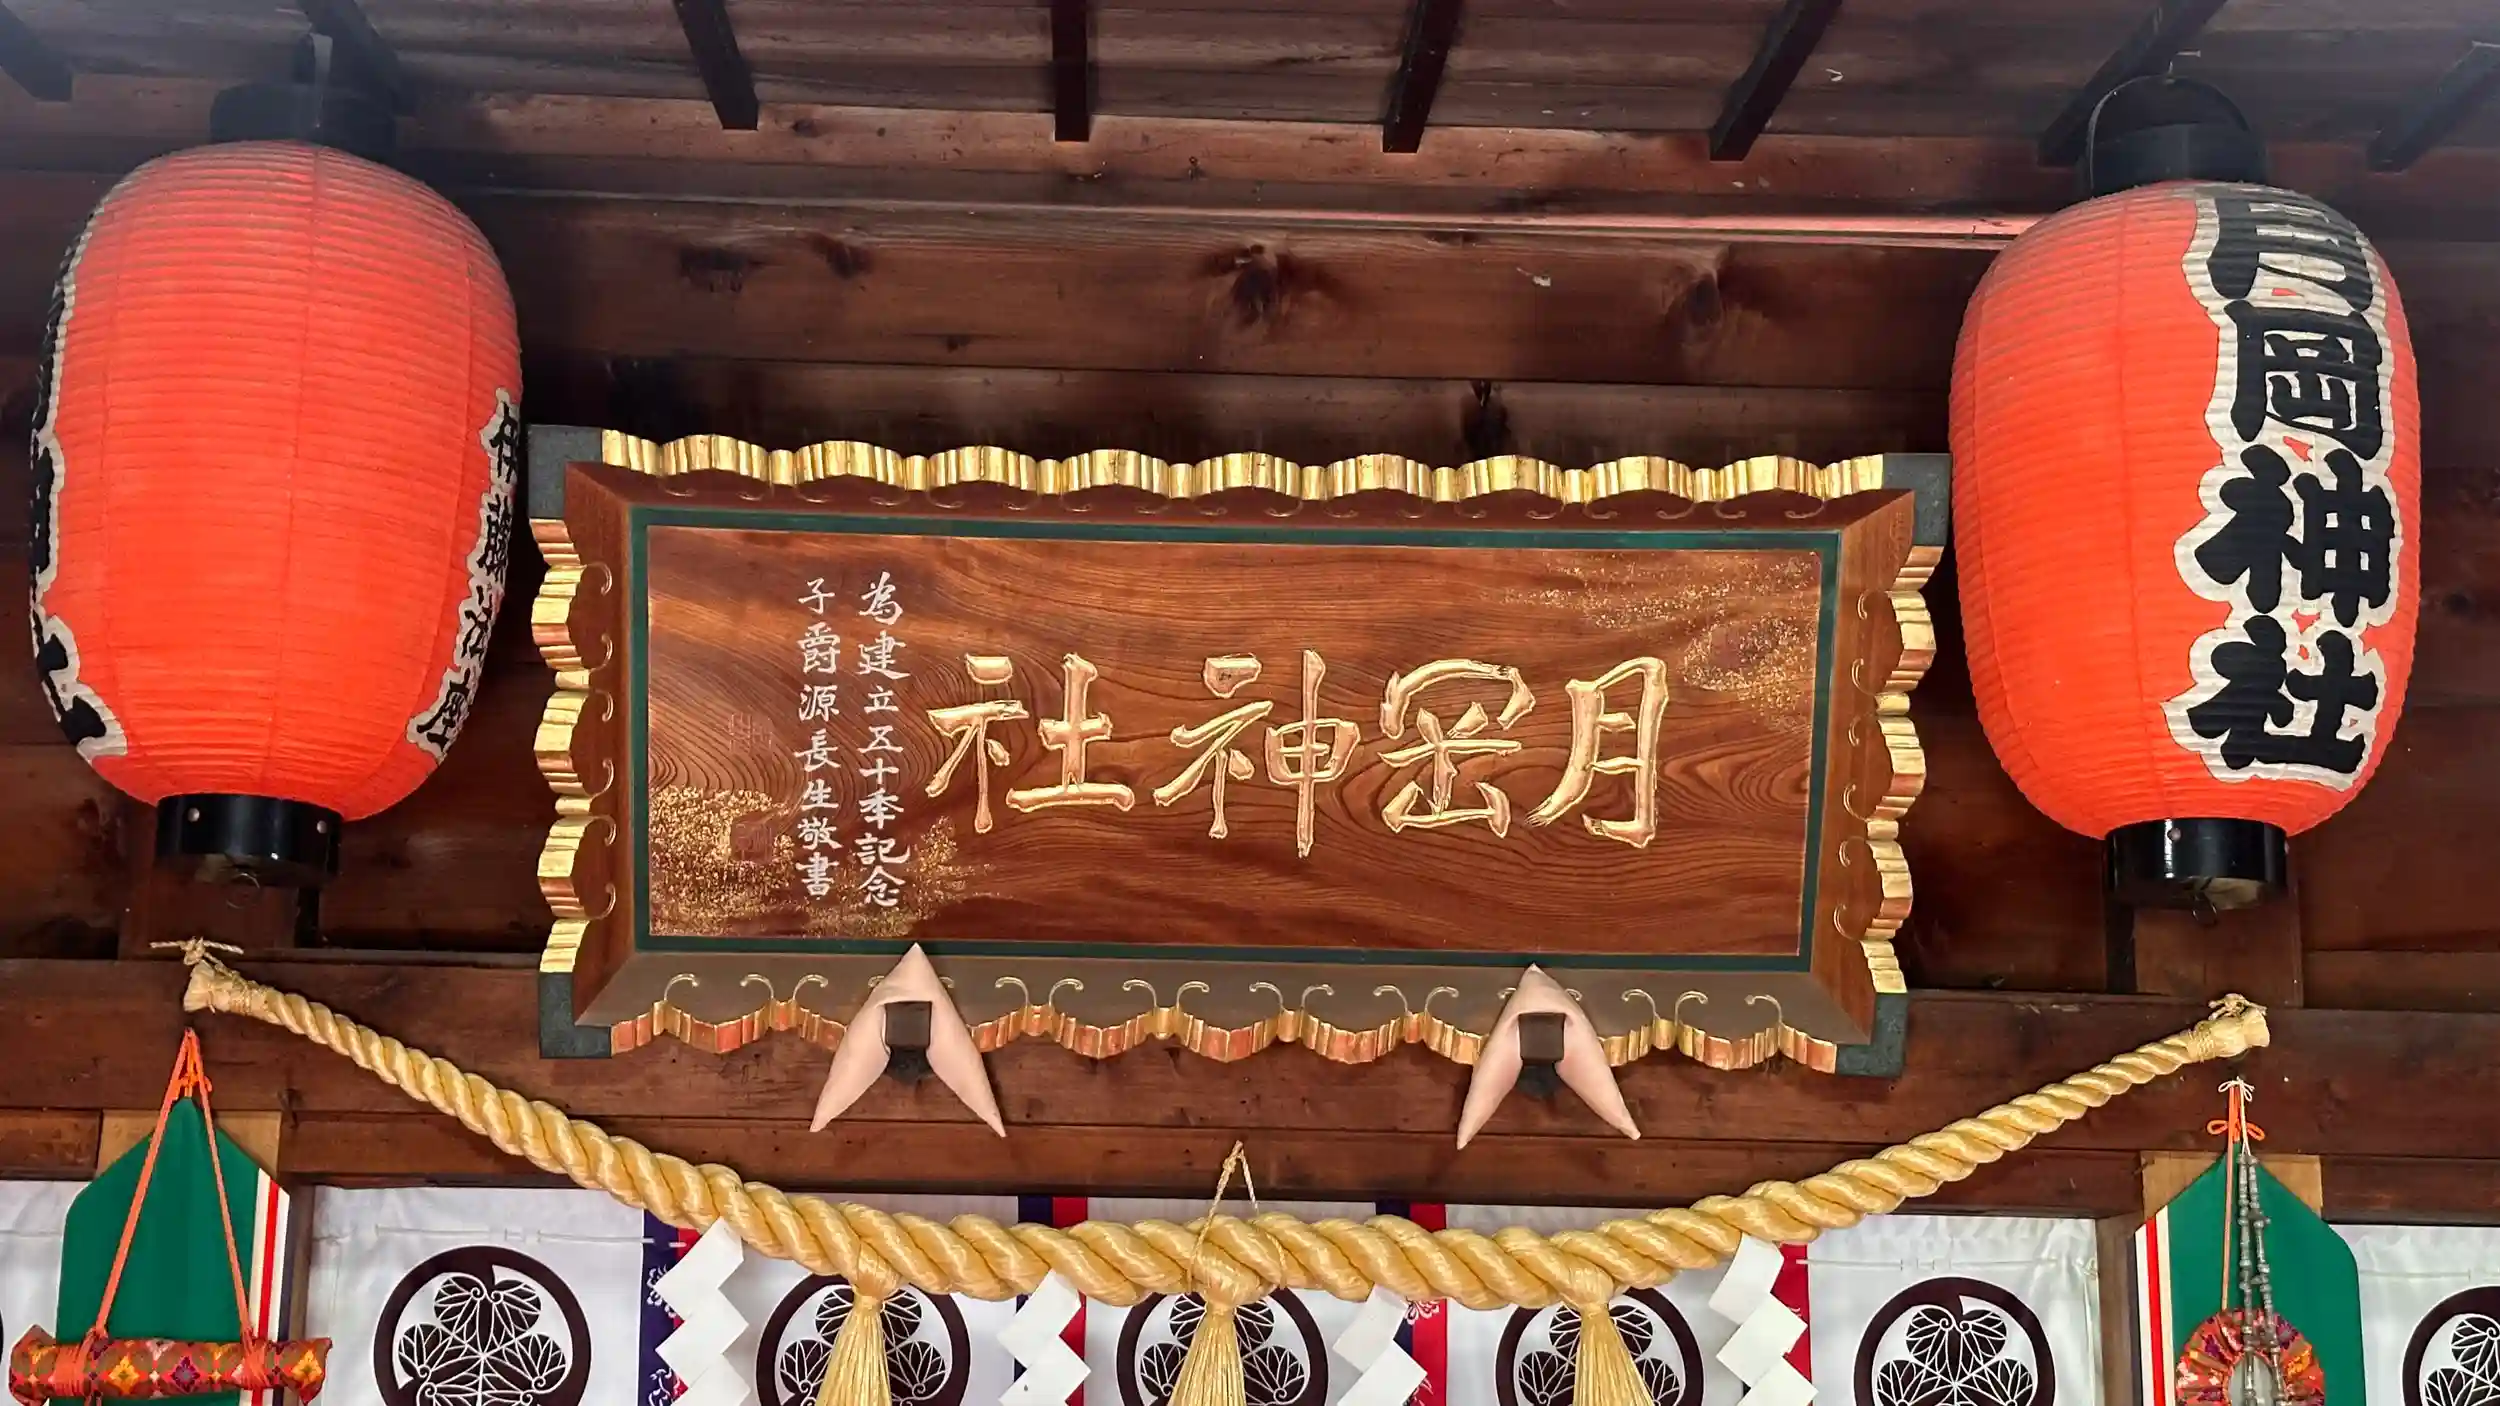 月岡神社
月岡神社
為建立五十季記念
子爵源長生敬書
伊藤治